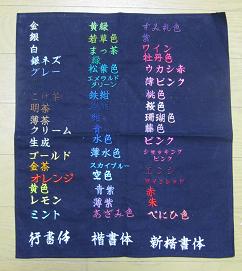 金
銀
白
銀ネズ
グレー
こげ茶
明茶
薄茶
クリーム
生成
ゴールド
金茶
オレンジ
黄色
レモン
ミント
黄緑
若草色
まっ茶
緑
松葉色
エメラルド
グリーン
鉄紺
青
水色
薄水色
スカイブルー
空色
青紫
薄紫
あざみ色
すみれ色
紫
ワイン
牡丹色
ウカシ赤
薄ピンク
桃色
桜色
珊瑚色
藤色
ピンク
ショッキング
ピンク
エンジ
赤
朱
べにひ色
行書体
楷書体
新楷書体